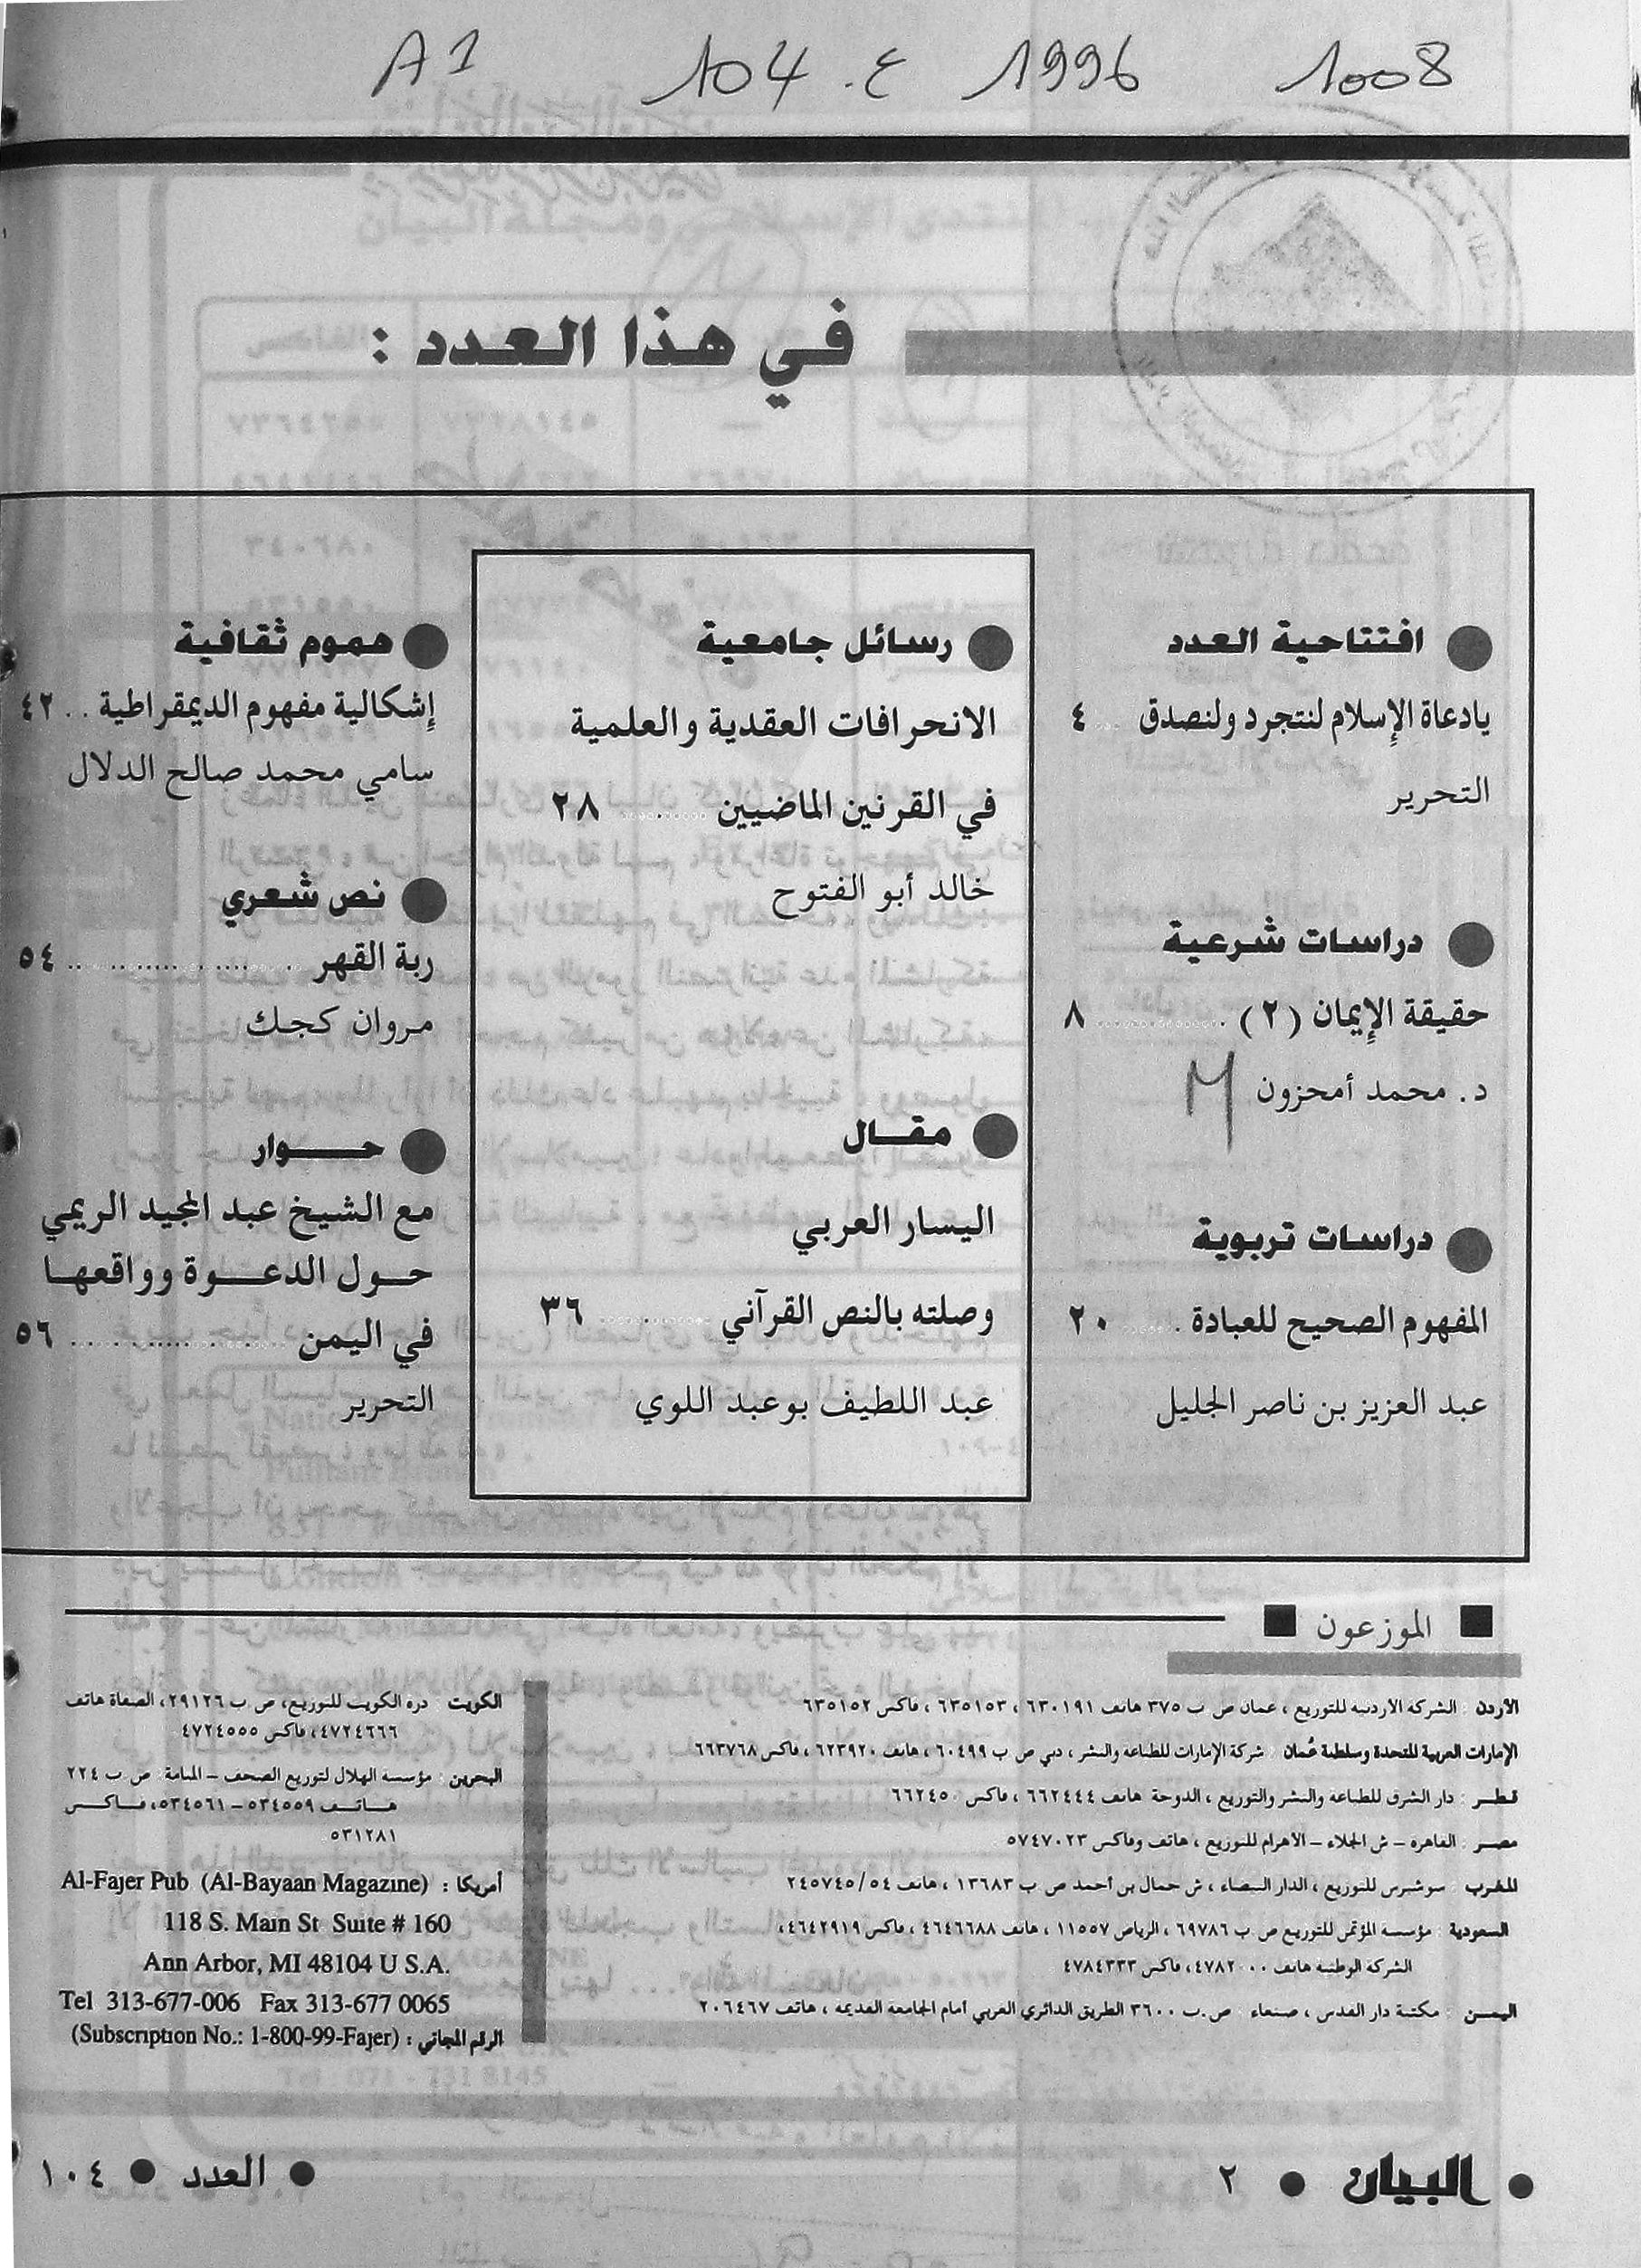 A1 104 .ع 1996 1008
في هذا العدد :
افتتاحية العدد
يادعاة الإسلام لنتجرد ولنصدق ..... ٤
التحرير
دراسات شرعية
حقيقة الإيمان (٢) ............... ٨
د. محمد أمحزون M
دراسات تربوية
المفهوم الصحيح للعبادة ....... ٢٠
عبد العزيز بن ناصر الجليل
رسائل جامعية
الانحرافات العقدية والعلمية
في القرنين الماضيين ........... ٢٨
خالد أبو الفتوح
مقال
اليسار العربي
وصلته بالنص القرآني ............. ٣٦
عبد اللطيف بوعبد اللوي
هموم ثقافية
إشكالية مفهوم الديمقراطية .. ٤٢
سامي محمد صالح الدلال
نص شعري
ربة القهر .......................... ٥٤
مروان كجك
حـــوار
مع الشيخ عبد المجيد الريمي
حول الدعوة وواقعها
في اليمن ......................... ٥٦
التحرير
الموزعون
الأردن : الشركة الأردنية للتوزيع ، عمان ص ب ٣٧٥ هاتف ٦٣٠١٩١ ، ٦٣٥١٥٣ ، فاكس ٦٣٥١٥٢
الإمارات العربية المتحدة وسلطنة عُمان : شركة الإمارات للطباعة والنشر ، دبي ص ب ٦٠٤٩٩ ، هاتف ٦٢٣٩٢٠ ، فاكس ٦٦٣٧٦٨
قطر : دار الشرق للطباعة والنشر والتوزيع ، الدوحة هاتف ٦٦٢٤٤٤ ، فاكس ٦٦٢٤٥٠
مصر : القاهرة – ش الجلاء – الأهرام للتوزيع ، هاتف وفاكس ٥٧٤٧٠٢٣
المغرب : سوشبرس للتوزيع ، الدار البيضاء ، ش جمال بن أحمد ص ب ١٣٦٨٣ ، هاتف ٢٤٥٧٤٥/٥٤
السعودية : مؤسسة المؤتمن للتوزيع ص ب ٦٩٧٨٦ ، الرياض ١١٥٥٧ ، هاتف ٤٦٤٦٦٨٨ ، فاكس ٤٦٤٢٩١٩ ،
الشركة الوطنية هاتف ٤٧٨٢٠٠٠ ، فاكس ٤٧٨٤٣٣٣
اليمن : مكتبة دار القدس ، صنعاء ص.ب ٣٦٠٠ الطريق الدائري الغربي أمام الجامعة القديمة ، هاتف ٢٠٦٤٦٧
الكويت : درة الكويت للتوزيع، ص ب ٢٩١٢٦ ، الصفاة هاتف
٤٧٢٤٦٦٦ ، فاكس ٤٧٢٤٥٥٥
البحرين : مؤسسة الهلال لتوزيع الصحف – المنامة ص ب ٢٢٤
هاتف ٥٣٤٥٥٩ – ٥٣٤٥٦١ ، فاكس
٥٣١٢٨١
أمريكا : Al-Fajer Pub (Al-Bayaan Magazine)
118 S. Main St Suite # 160
Ann Arbor, MI 48104 U S.A.
Tel 313-677-006 Fax 313-677 0065
الرقم المجاني : (Subscription No.: 1-800-99-Fajer)
البيان ● ٢
العدد ● ١٠٤